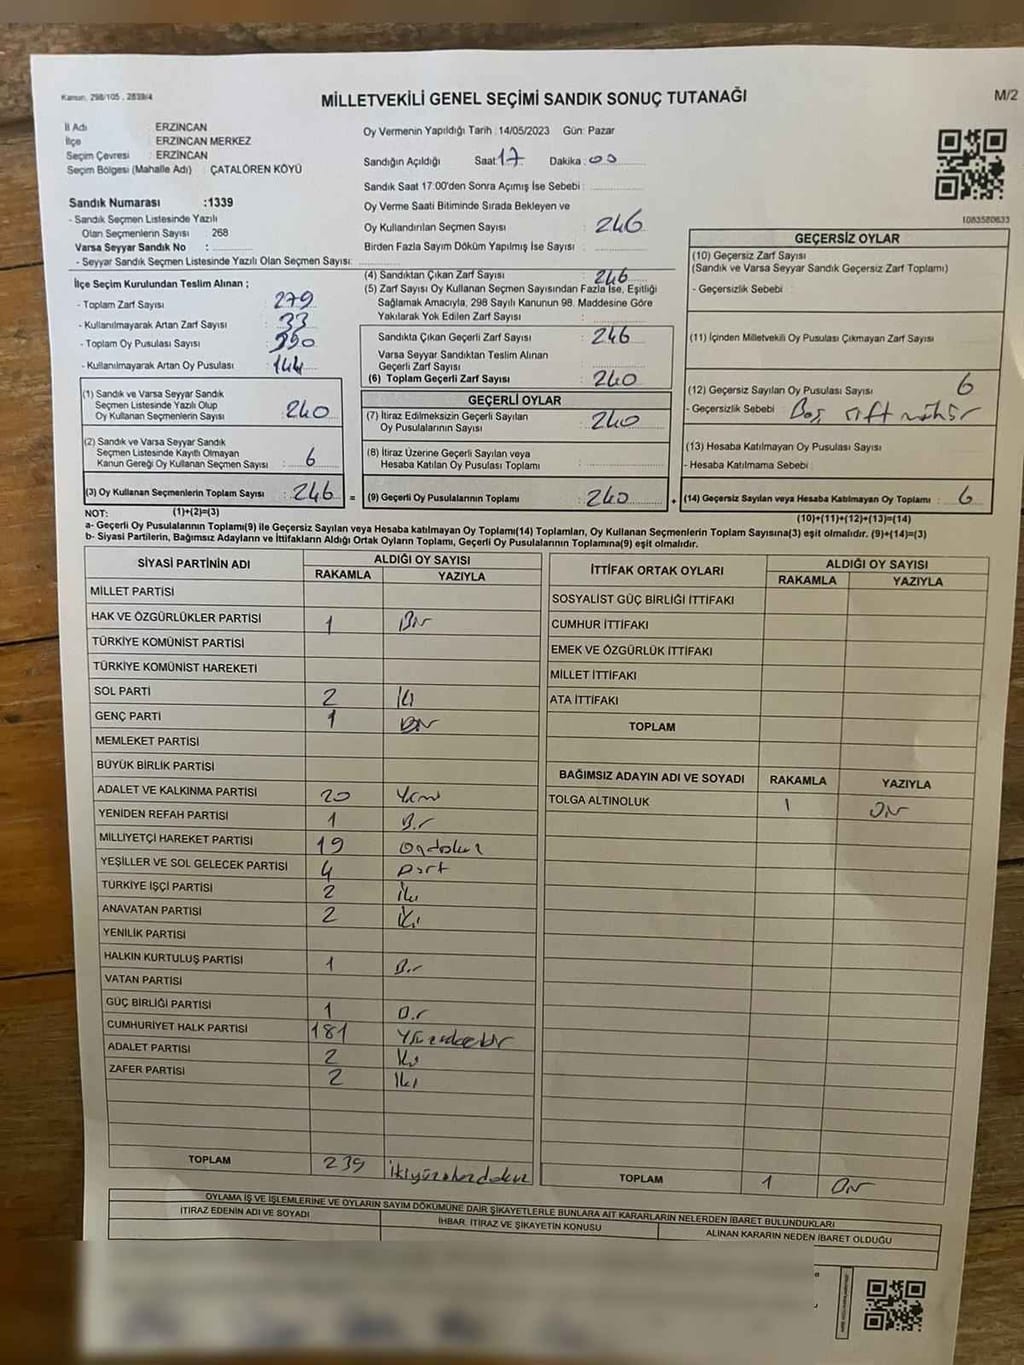 Kanun, 298/105 , 2839/4
MİLLETVEKİLİ GENEL SEÇİMİ SANDIK SONUÇ TUTANAĞI
M/2
İl Adı ERZİNCAN
İlçe ERZİNCAN MERKEZ
Seçim Çevresi : ERZİNCAN
Seçim Bölgesi (Mahalle Adı) : ÇATALÖREN KÖYÜ
Sandık Numarası :1339
- Sandık Seçmen Listesinde Yazılı
Olan Seçmenlerin Sayısı 268
Varsa Seyyar Sandık No :
- Seyyar Sandık Seçmen Listesinde Yazılı Olan Seçmen Sayısı:
İlçe Seçim Kurulundan Teslim Alınan ;
- Toplam Zarf Sayısı : 279
- Kullanılmayarak Artan Zarf Sayısı : 33
- Toplam Oy Pusulası Sayısı : 390
- Kullanılmayarak Artan Oy Pusulası : 144
(1) Sandık ve Varsa Seyyar Sandık
Seçmen Listesinde Yazılı Olup
Oy Kullanan Seçmenlerin Sayısı : 240
(2) Sandık ve Varsa Seyyar Sandık
Seçmen Listesinde Kayıtlı Olmayan
Kanun Gereği Oy Kullanan Seçmen Sayısı : 6
(3) Oy Kullanan Seçmenlerin Toplam Sayısı : 246 =
(1)+(2)=(3)
Oy Vermenin Yapıldığı Tarih :14/05/2023 Gün: Pazar
Sandığın Açıldığı Saat: 17 Dakika: 00
Sandık Saat 17:00'den Sonra Açımış İse Sebebi :
Oy Verme Saati Bitiminde Sırada Bekleyen ve
Oy Kullandırılan Seçmen Sayısı : 246
Birden Fazla Sayım Döküm Yapılmış İse Sayısı :
(4) Sandıktan Çıkan Zarf Sayısı : 246
(5) Zarf Sayısı Oy Kullanan Seçmen Sayısından Fazla İse, Eşitliği
Sağlamak Amacıyla, 298 Sayılı Kanunun 98. Maddesine Göre
Yakılarak Yok Edilen Zarf Sayısı :
Sandıkta Çıkan Geçerli Zarf Sayısı : 246
Varsa Seyyar Sandıktan Teslim Alınan
Geçerli Zarf Sayısı :
(6) Toplam Geçerli Zarf Sayısı : 240
GEÇERLİ OYLAR
(7) İtiraz Edilmeksizin Geçerli Sayılan
Oy Pusulalarının Sayısı : 240
(8) İtiraz Üzerine Geçerli Sayılan veya
Hesaba Katılan Oy Pusulası Toplamı :
(9) Geçerli Oy Pusulalarının Toplamı : 240 +
1083580833
GEÇERSİZ OYLAR
(10) Geçersiz Zarf Sayısı
(Sandık ve Varsa Seyyar Sandık Geçersiz Zarf Toplamı)
- Geçersizlik Sebebi :
(11) İçinden Milletvekili Oy Pusulası Çıkmayan Zarf Sayısı
(12) Geçersiz Sayılan Oy Pusulası Sayısı : 6
- Geçersizlik Sebebi : Boş çift mühür
(13) Hesaba Katılmayan Oy Pusulası Sayısı :
- Hesaba Katılmama Sebebi :
(14) Geçersiz Sayılan veya Hesaba Katılmayan Oy Toplamı : 6
(10)+(11)+(12)+(13)=(14)
NOT:
a- Geçerli Oy Pusulalarının Toplamı(9) ile Geçersiz Sayılan veya Hesaba katılmayan Oy Toplamı(14) Toplamları, Oy Kullanan Seçmenlerin Toplam Sayısına(3) eşit olmalıdır. (9)+(14)=(3)
b- Siyasi Partilerin, Bağımsız Adayların ve İttifakların Aldığı Ortak Oyların Toplamı, Geçerli Oy Pusulalarının Toplamına(9) eşit olmalıdır.
SİYASİ PARTİNİN ADI ALDIĞI OY SAYISI
RAKAMLA YAZIYLA
MİLLET PARTİSİ
HAK VE ÖZGÜRLÜKLER PARTİSİ 1 Bir
TÜRKİYE KOMÜNİST PARTİSİ
TÜRKİYE KOMÜNİST HAREKETİ
SOL PARTİ 2 İki
GENÇ PARTİ 1 Bir
MEMLEKET PARTİSİ
BÜYÜK BİRLİK PARTİSİ
ADALET VE KALKINMA PARTİSİ 20 Yirmi
YENİDEN REFAH PARTİSİ 1 Bir
MİLLİYETÇİ HAREKET PARTİSİ 19 Ondokuz
YEŞİLLER VE SOL GELECEK PARTİSİ 4 Dört
TÜRKİYE İŞÇİ PARTİSİ 2 İki
ANAVATAN PARTİSİ 2 İki
YENİLİK PARTİSİ
HALKIN KURTULUŞ PARTİSİ 1 Bir
VATAN PARTİSİ
GÜÇ BİRLİĞİ PARTİSİ 1 Bir
CUMHURİYET HALK PARTİSİ 181 Yüzseksenbir
ADALET PARTİSİ 2 İki
ZAFER PARTİSİ 2 İki
TOPLAM 239 ikiyüzotuzdokuz
İTTİFAK ORTAK OYLARI ALDIĞI OY SAYISI
RAKAMLA YAZIYLA
SOSYALİST GÜÇ BİRLİĞİ İTTİFAKI
CUMHUR İTTİFAKI
EMEK VE ÖZGÜRLÜK İTTİFAKI
MİLLET İTTİFAKI
ATA İTTİFAKI
TOPLAM
BAĞIMSIZ ADAYIN ADI VE SOYADI RAKAMLA YAZIYLA
TOLGA ALTINOLUK 1 Bir
TOPLAM 1 Bir
OYLAMA İŞ VE İŞLEMLERİNE VE OYLARIN SAYIM DÖKÜMÜNE DAİR ŞİKAYETLERLE BUNLARA AİT KARARLARIN NELERDEN İBARET BULUNDUKLARI
İTİRAZ EDENİN ADI VE SOYADI İHBAR, İTİRAZ VE ŞİKAYETİN KONUSU ALINAN KARARIN NEDEN İBARET OLDUĞU